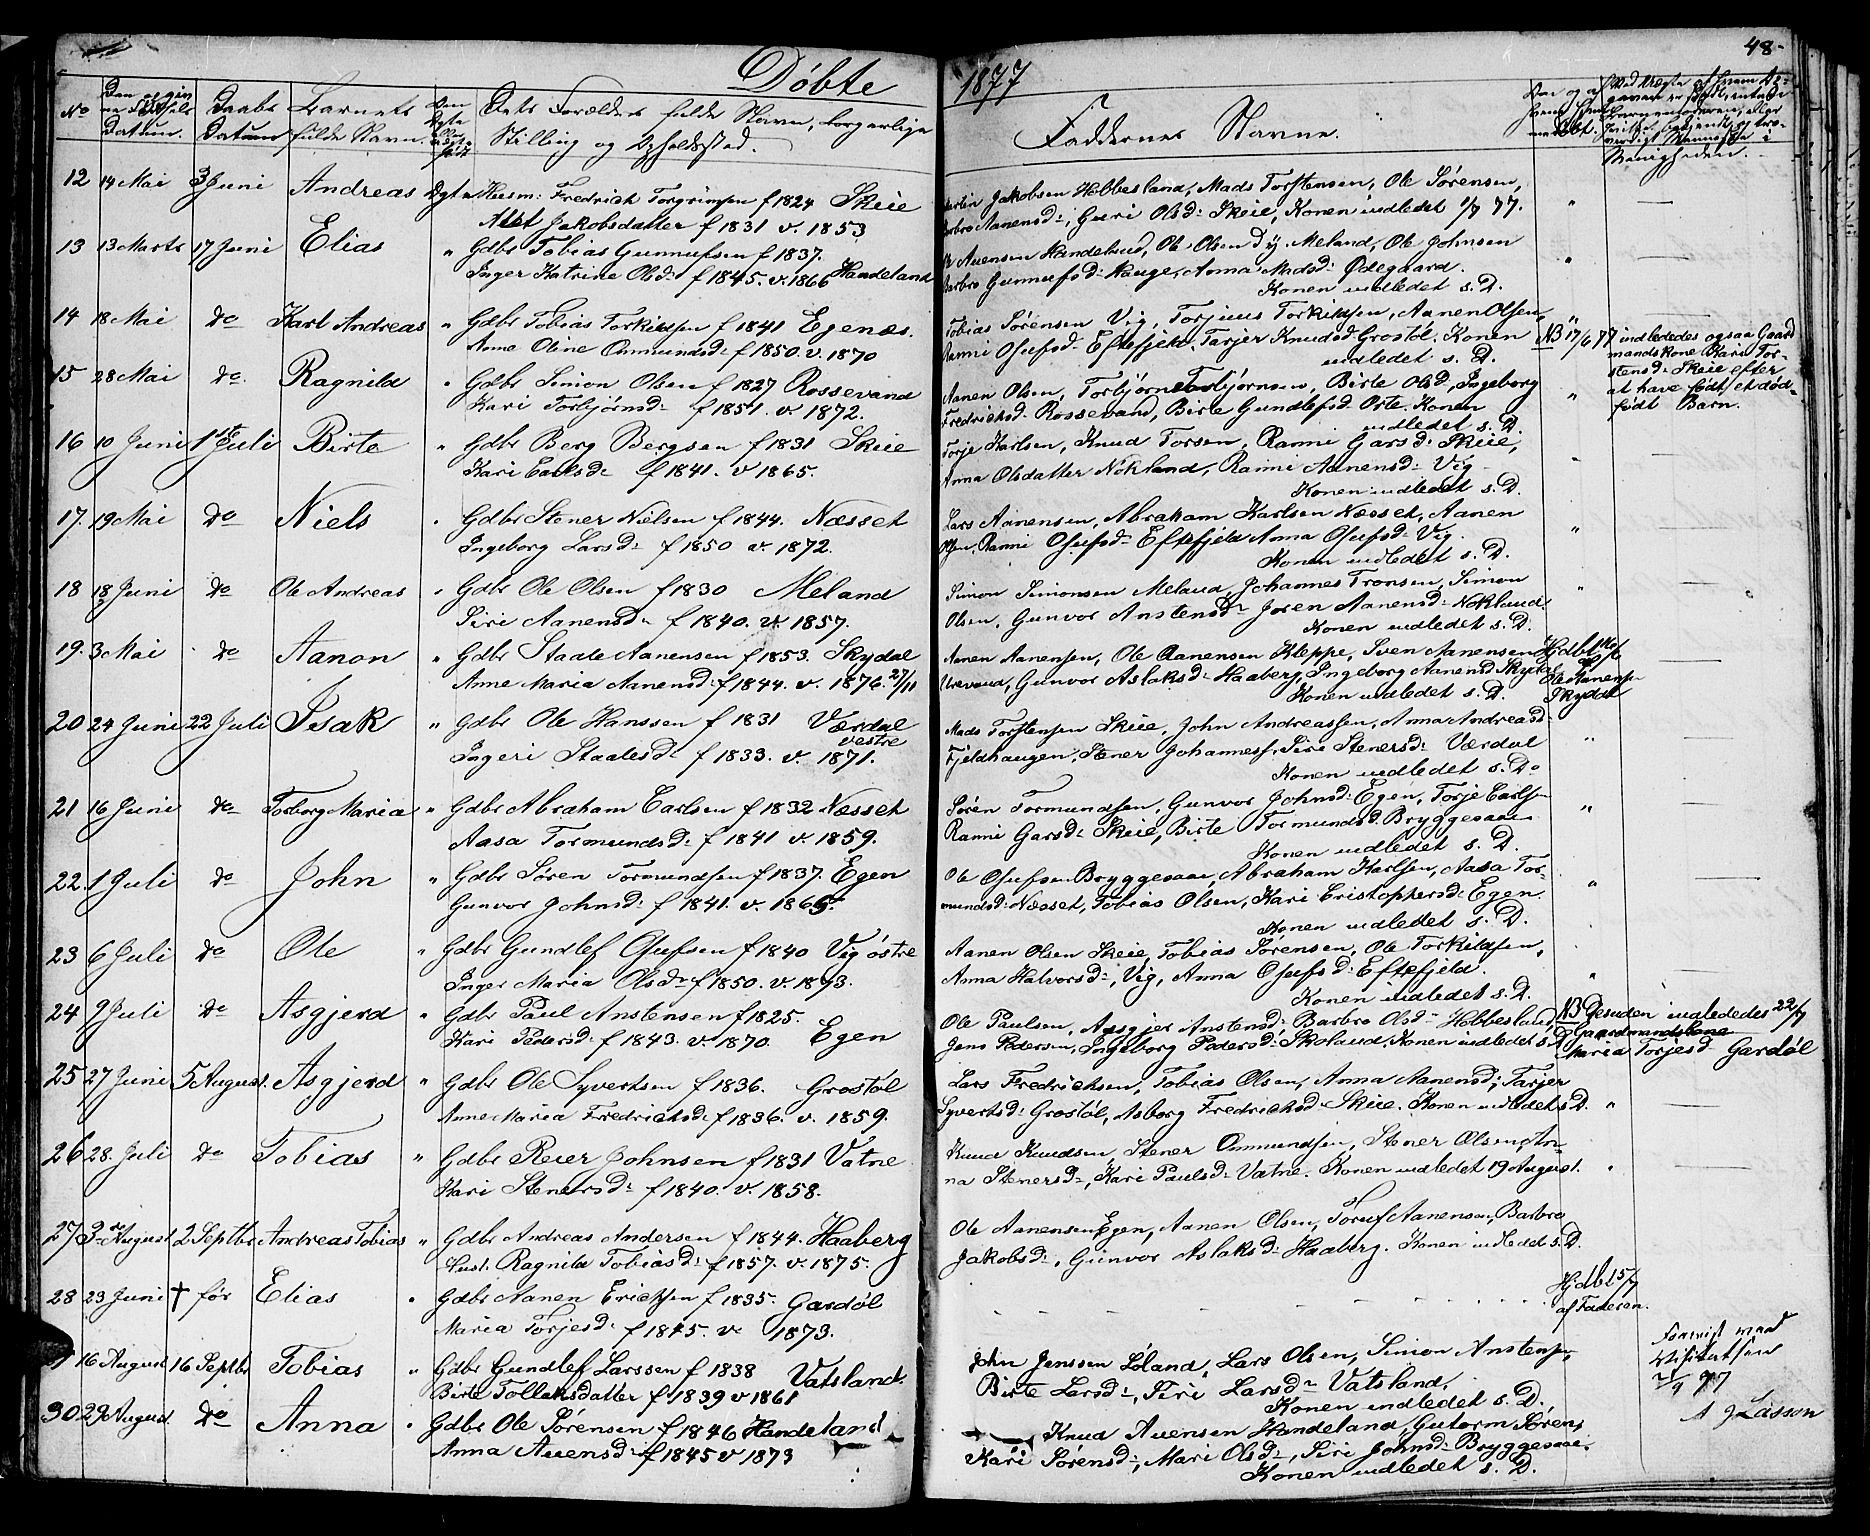 48-
Döbte 1877
No
Daabs Datum
Barnets fulde Navn.
Dets Forældres fulde Navn, borgerlige
Stilling og Opholdssted.
Faddernes Navne.
Menigheden.
12 14 Mai 3 Juni Andreas Dgte Huusm: Fredrich Torgrimsen f 1824 Skeie
Jakobsdatter f 1831 v. 1853
Jakobsen Hobbesland, Mads Torstensen, Ole Sørensen,
Aanensd:, Guri Olsd: Skeie, Konen indledet 1/7 77. "
13 13 Marts 17 Juni Elias " Gdbr Tobias Gunnufsen f 1837.
Inger Katrine Olsd: f 1845. v. 1866 Handeland
Auensen Handeland, Ole Olsen Meland, Ole Johnsen
Barbro Gunnufsd: Hauge, Anna Madsd: Ødegaard.
Konen indledet s. D. "
14 18 Mai do Karl Andreas " Gdbr Tobias Torkildsen f 1841 Egenæs.
Anne Oline Ommundsd: f 1850. v. 1870
Tobias Sørensen Vig, Torjuus Torkildsen, Aanen Olsen,
Ranni Osufsd: Eftefjeld, Tarjer Knudsd: Grostöl. Konen
indledet s. D.
NB 17/6 77 indledes ogsaa Gaard
mandskone Kari Tor-
stensd: Skeie efter
at have født et død-
født Barn.
15 28 Mai do. Ragnild " Gdbr Simon Olsen f 1827 Rossevand
Kari Torbjørnsd: f 1851. v. 1872.
Aanen Olsen, Torbjørn Torbjørnsen, Birte Olsd, Ingeborg
Fredrichsd: Rossevand, Birte Gundlefsd: Orte. Konen
indledet s. D. "
16 10 Juni 1ste Juli Birte " Gdbr Berg Bergsen f 1831 Skeie
Kari Carlsd: f 1841. v 1865.
Torje Karlsen, Knud Torsen, Ranni Garsd: Skeie,
Anna Olsdatter Nokland, Ranni Aanensd: Vig
Konen indledet s. D. "
17. 19 Mai do Niels " Gdbr Stener Nielsen f 1844. Næsset
Ingeborg Larsd: f 1850 v. 1872.
Lars Aanensen, Abraham Karlsen Næsset, Aanen
Olsen, Ranni Osufsd: Eftefjeld Anna Osufsd: Vig.
Konen indledet s. D. "
18 18 Juni do Ole Andreas " Gdbr Ole Olsen f 1830 Meland
Siri Aanensd: f 1840. v. 1857.
Simon Simonsen Meland, Johannes Tronsen, Simon
Olsen, Gunvor Anstensd: Joren Aanensd: Nokland
Konen indledet s. D. "
19. 3 Mai do Aanon " Gdbr Staale Aanensen f 1853. Skydal
Anne Maria Aanensd: f 1844. v. 1876. 27/11
Aanen Aanensen, Ole Aanensen Kleppe, Sven Aanensen
Urevand, Gunvor Aslaksd: Haaberg, Ingeborg Aanensd: Skydal
Konen indledet s. D.
Skydal
20 24 Juni 22 Juli Isak " Gdbr Ole Hanssen f 1831 Værdal
vestre
Ingeri Staalesd: f 1833. v. 1871.
Mads Torstensen Skeie, John Andreassen, Anna Andreasd:
Fjeldhaugen, Stener Johanness: Siri Stenersd: Værdal
Konen indledet s. D. "
21 16 Juni do Torborg Maria " Gdbr Abraham Carlsen f 1832 Næsset
Aasa Tormundsd: f 1841 v. 1859.
Søren Tormundsen, Gunvor Johnsd: Egen, Torje Carlsen
Ranni Garsd: Skeie, Birte Tormundsd: Bryggesaae
Konen indledet s. D. "
22. 1 Juli do John " Gdbr Søren Tormundsen f 1837. Egen
Gunvor Johnsd: f 1841. v. 1865.
Ole Osufsen Bryggesaae, Abraham Karlsen, Aasa Tor-
mundsd: Næsset, Tobias Olsen, Kari Cristophersd: Egen.
Konen indledet s. D. "
23 6 Juli do Ole " Gdbr Gundlef Osufsen f 1840 Vig østre
Inger Maria Olsd: f 1850. v. 1873.
Aanen Olsen Skeie, Tobias Sørensen, Ole Torkildsen,
Anna Halvorsd:, Vig, Anna Osufsd: Eftefjeld.
Konen indledet s. D. "
24 9 Juli do Asgjerd " Gdbr Paul Anstensen f 1825.
Kari Pedersd: f 1843. v. 1870. Egen
Ole Paulsen, Asgjer Anstensd: Barbro Olsd: Hobbesland,
Jens Pedersen, Ingeborg Pedersd: Skoland, Konen indledet s. D.
NB Desuden indledes 22/7
Gaardmandskone
Maria Torjesd: Gardøl
25 27 Juni 5 August. Asgjerd " Gdbr Ole Syvertsen f 1836. Grostöl
Anne Maria Fredrichsd: f 1836. v. 1859.
Lars Fredrichsen, Tobias Olsen, Anna Aanensd:, Tarjer
Syvertsd: Grostöl, Asborg Fredrichsd: Skeie. Konen indledet s. D. "
26 28. Juli do Tobias " Gdbr Reier Johnsen f 1831 Vatne
Kari Stenersd: f 1840. v. 1858.
Knud Knudsen, Stener Ommundsen, Stener Olsen, An-
na Stenersd:, Kari Paulsd: Vatne. Konen indledet 19 August. "
27 3 August 2 Septbr Andreas Tobias " Gdbr Andreas Andersen f 1844. Haaberg
Hust. Ragnild Tobiasd: f 1857. v. 1875.
Ole Aanensen Egen, Aanen Olsen, Toruf Aanensen, Barbro
Jakobsd:, Gunvor Aslaksd: Haaberg. Konen indledet s. D.
28 23 Juni † før Elias " Gdbr Aanen Ericksen f 1835. Gardøl
Maria Torjesd: f 1845. v. 1873.
Hjdbt 15/7
af Faderen.
16 August 16 Septbr Tobias " Gdbr Gundlef Larssen f 1838 Vatsland.
Birte Tollaksdatter f 1839 v 1861
John Jenssen Löland, Lars Olsen, Simon Anstensen,
Birte Larsd:, Siri Larsd: Vatsland.
Konen indledet s. D.
Foreviist ved
Visitatsen
21/9 77
A J Lasson
30 29 August. do Anna " Gdbr Ole Sørensen f 1846 Handeland
Anna Auensd: f 1845 v 1873
Knud Auensen Handeland, Gutorm Sørens,
Kari Sørensd:, Mari Olsd:, Siri Johnsd: Bryggesaae.
Konen indledet s. D.